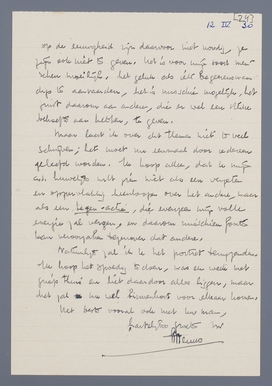 [24]
12 IV 30
op de eeuwigheid zijn daarvoor niet noodig, je
zijn ook niet te geven. Het is voor mij soort men-
schen moeilijk, het geluk als iets
te aanvaarden, het is misschien mogelijk, het
juist daarom aan andere, die er wel een stille
behoefte aan hebben, te geven.
Maar laat ik over dit thema niet te veel
schrijven; het moet nu eenmaal door iedereen
geleefd worden. Ik hoop alleen, dat je mijn
huwelijk niet zien niet als een
en oppervlakkig heenloopen over het andere, maar
als een tegen-actie, die evenzeer mijn volle
energie zal vergen, en daarom misschien fouten
kan veroorzaken tegenover dat andere.
Natuurlijk zal ik je het portret terugzenden.
Ik hoop het spoedig te doen, was een week niet
thuis en liet daardoor alles liggen, maar
het zal nu wel binnenkort voor elkaar komen.
Het beste vooral ook met uw man,
hartelijke groeten